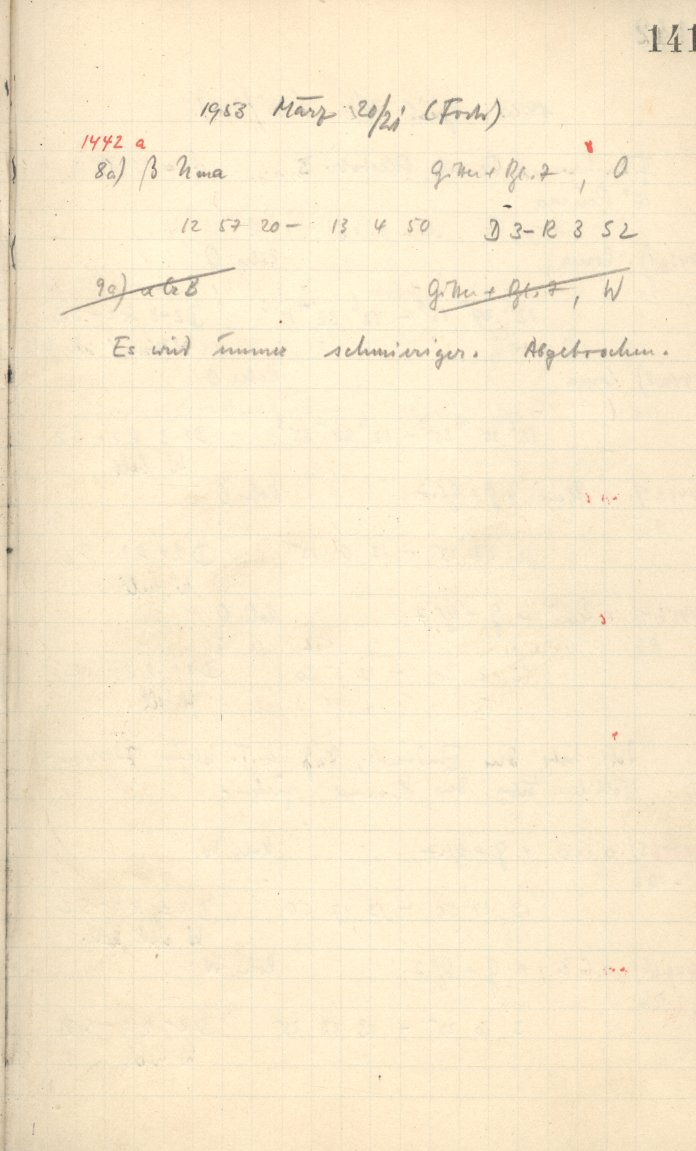 141
1953 März 20/21 (Forts)
1442 a
8a) β Uma Gitter + Bl. 7, O
12 57 20 - 13 4 50 D 3 - R 3 52
9a) Gitter + Bl. 7, W
Es wird immer schmieriger. Abgebrochen.